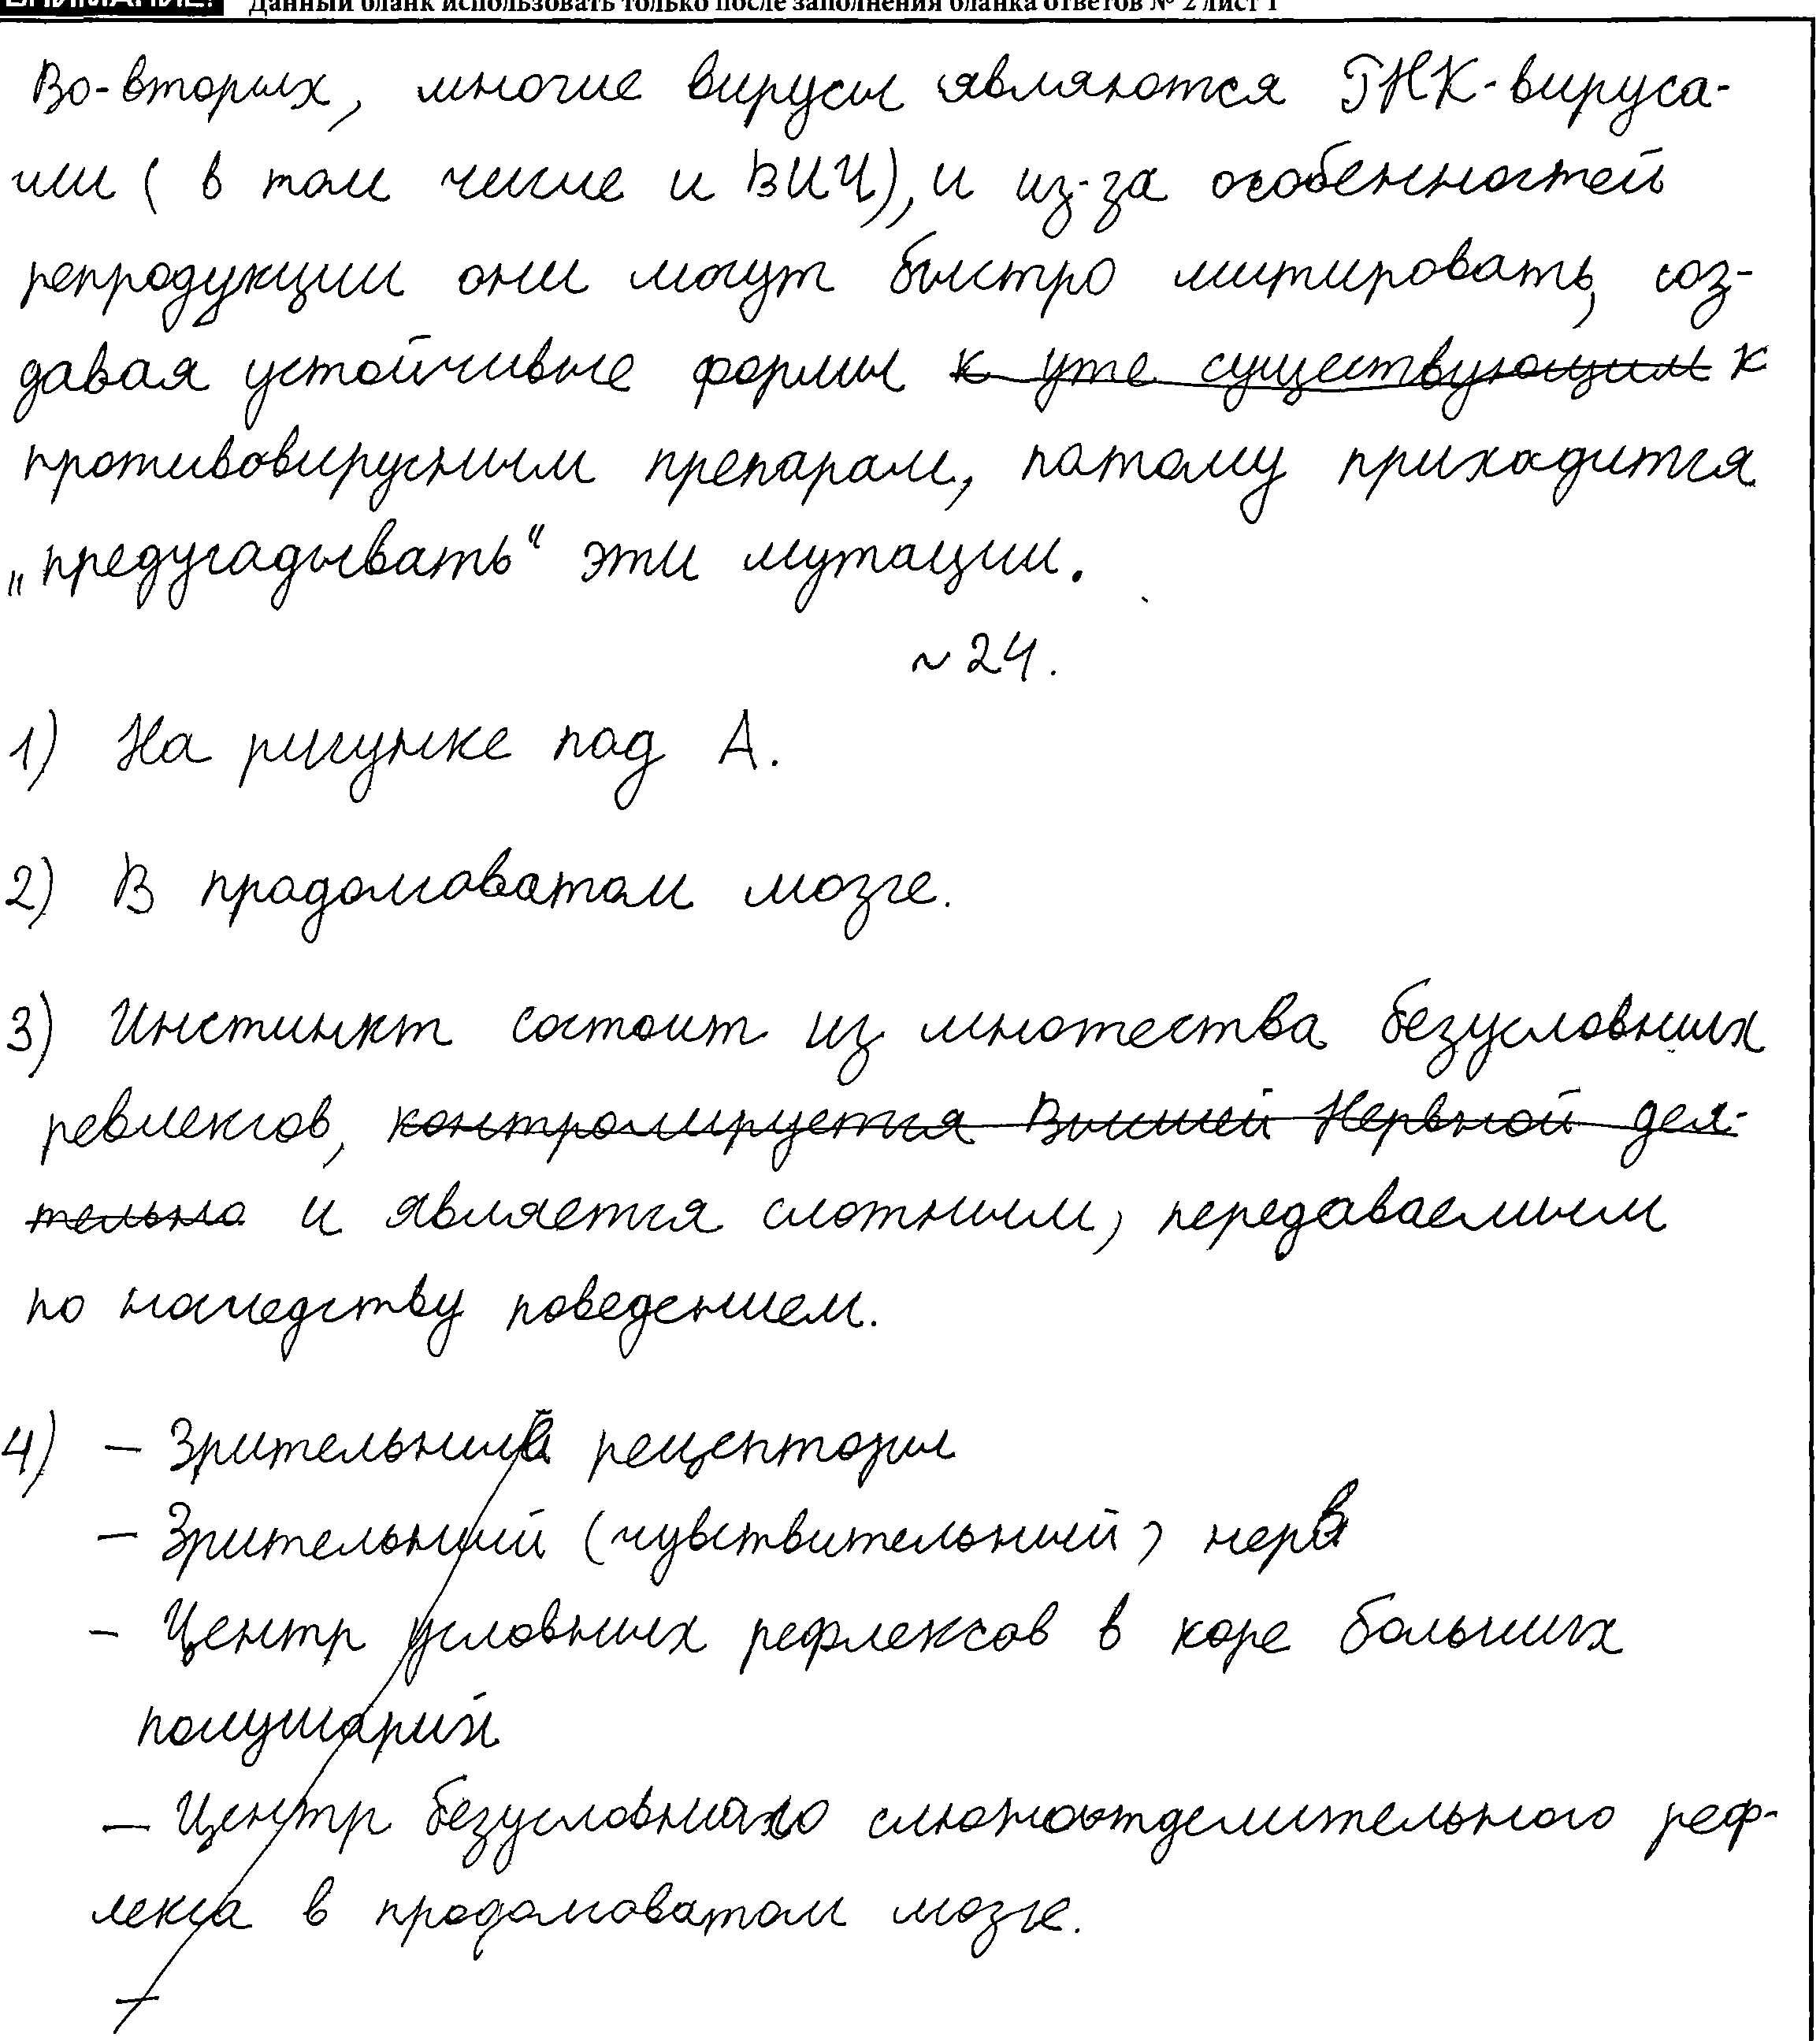 ВНИМАНИЕ! Данный бланк использовать только после заполнения бланка ответов № 2 лист 1
Во-вторых, многие вирусы являются РНК-вируса-
ми ( в том числе и ВИЧ), и из-за особенностей
репродукции они могут быстро митировать, соз-
давая устойчивые формы к уже существующим к
противовирусным препарам, потому приходится
„предугадывать“ эти мутации.
~ 24.
1) На рисунке под А.
2) В продолговатом мозге.
3) Инстинкт состоит из множества безусловных
ревлексов, контролируется Высшей Нервной дея-
тельно и является сложным, передаваемым
по наследству поведением.
4) – Зрительный рецепторы
– Зрительный (чувствительный) нерв
– Центр условных рефлексов в коре больших
полушарий
– Центр безусловного слюноотделительного реф-
лекса в продолговатом мозге.
–